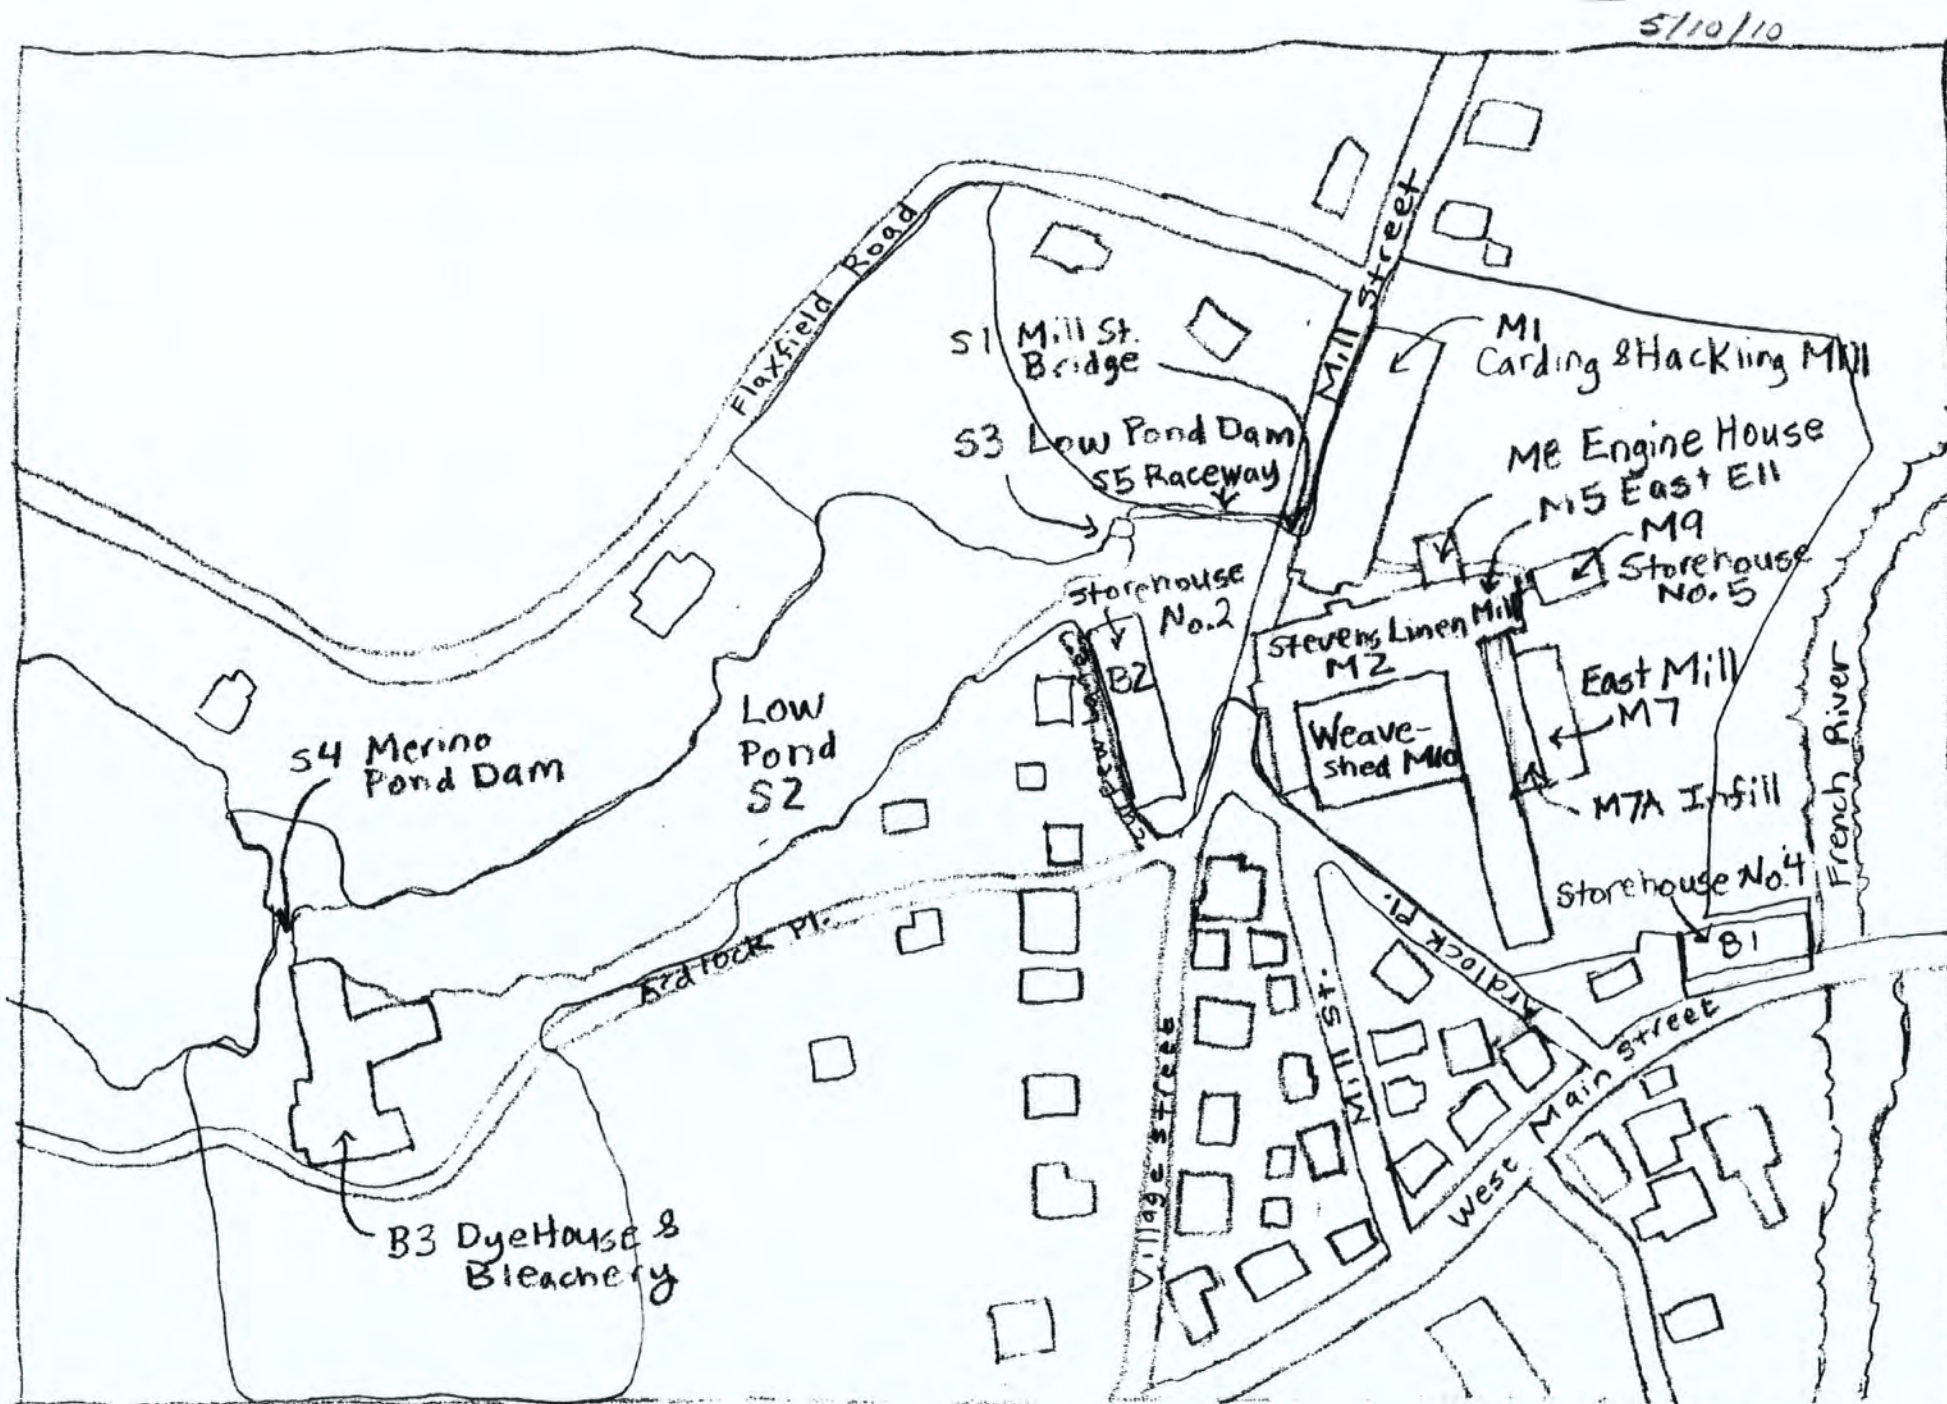 5/10/10
Mill Street
Flaxfield Road
S1 Mill St.
Bridge
M1
Carding & Hackling Mill
S3 Low Pond Dam
S5 Raceway
M8 Engine House
M5 East Ell
M9
Storehouse
No. 5
Storehouse
No. 2
B2
Stevens Linen Mill
M2
Weave-
shed M10
East Mill
M7
M7A Infill
French River
S4 Merino
Pond Dam
Low
Pond
S2
Storehouse No. 4
B1
Ardlock Pl.
Ardlock Pl.
Mill St.
Village Street
West Main Street
B3 DyeHouse &
Bleachery